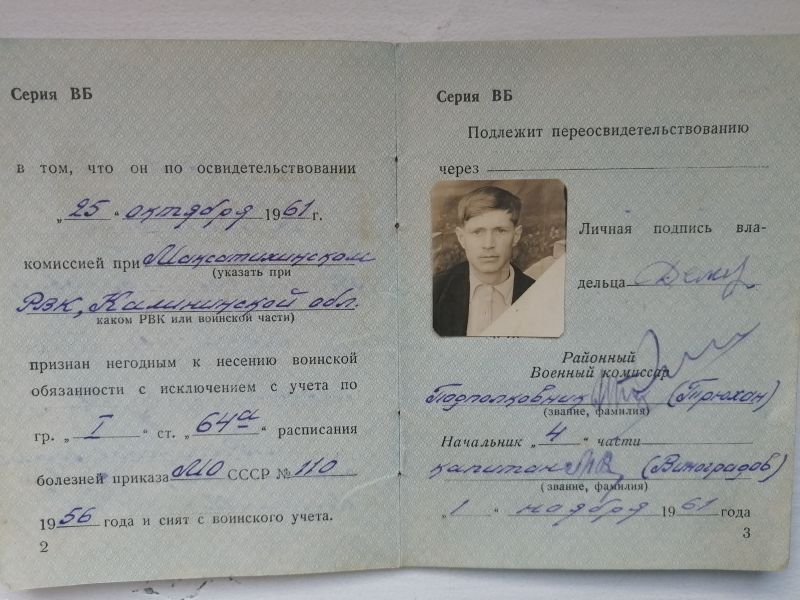 Серия ВБ
в том, что он по освидетельствовании
„25“ октября 1961 г.
комиссией при Максатихинском
(указать при
РВК, Калининской обл.
каком РВК или воинской части)
признан негодным к несению воинской
обязанности с исключением с учета по
гр. „I“ ст. „64а“ расписания
болезней приказа МО СССР № 110
1956 года и снят с воинского учета.
2
Серия ВБ
Подлежит переосвидетельствованию
через
Личная подпись вла-
дельца
Районный
Военный комиссар
Подполковник (Трюхан)
(звание, фамилия)
Начальник „4“ части
капитан (Виноградов)
(звание, фамилия)
„1“ ноября 1961 года
3